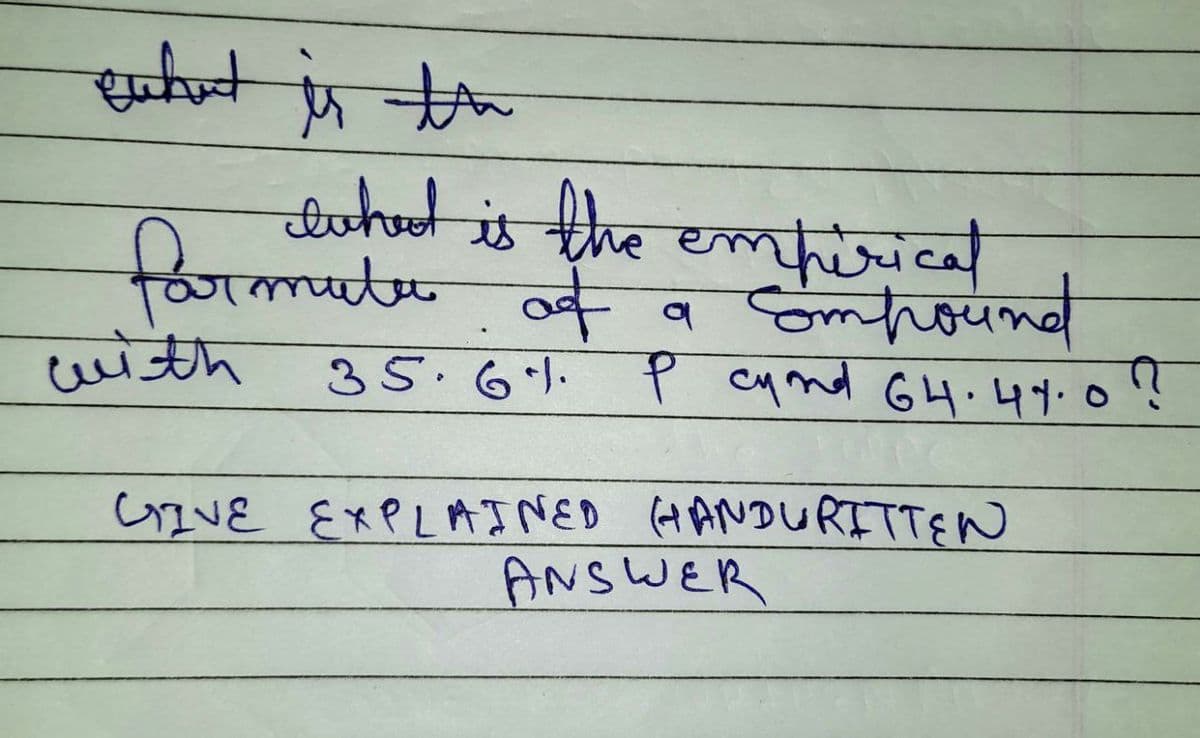 what is th
what is the empirical
formula of a compound
with 35.6% P and 64.4% O ?
GIVE EXPLAINED HANDWRITTEN
ANSWER